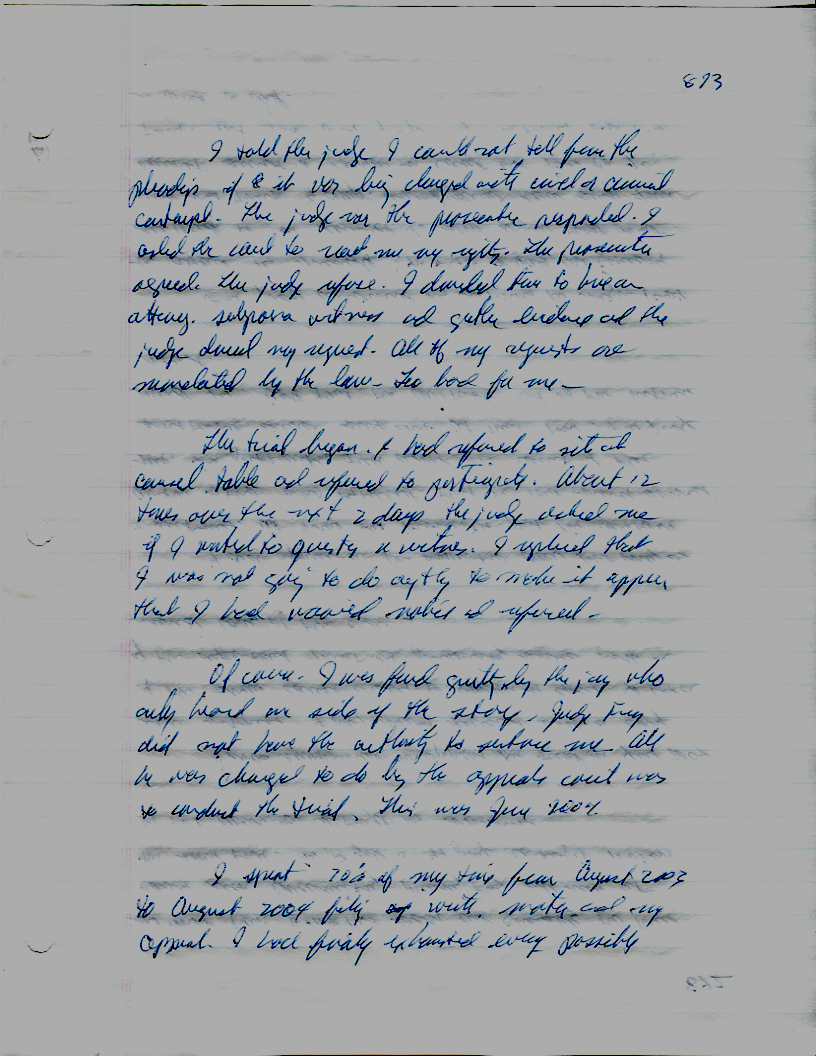 893
I told the judge I could not tell from the
pleadings if it was being charged with civil or criminal
contempt. The judge nor the prosecutor responded. I
asked the court to read me my rights. The prosecutor
agreed. The judge refuse. I demanded time to hire an
attorney, subpoena witness and gather evidence and the
judge denied my request. All of my requests are
mandated by the law. Too bad for me—
The trial began. I had refused to sit at
counsel table and refused to participate. About 12
times over the next 2 days the judge asked me
if I wanted to question a witness. I replied that
I was not going to do anything to make it appear
that I had waived notice and
Of course. I was found guilty by the jury who
only heard one side of the story. Judge
did not have the authority to sentence me. All
he was charged to do by the appeals court was
to conduct the trial. This was June 2004.
I spent 70% of my time from August 2003
to August 2004 filing writs, motions and my
appeal. I had finally exhausted every possible